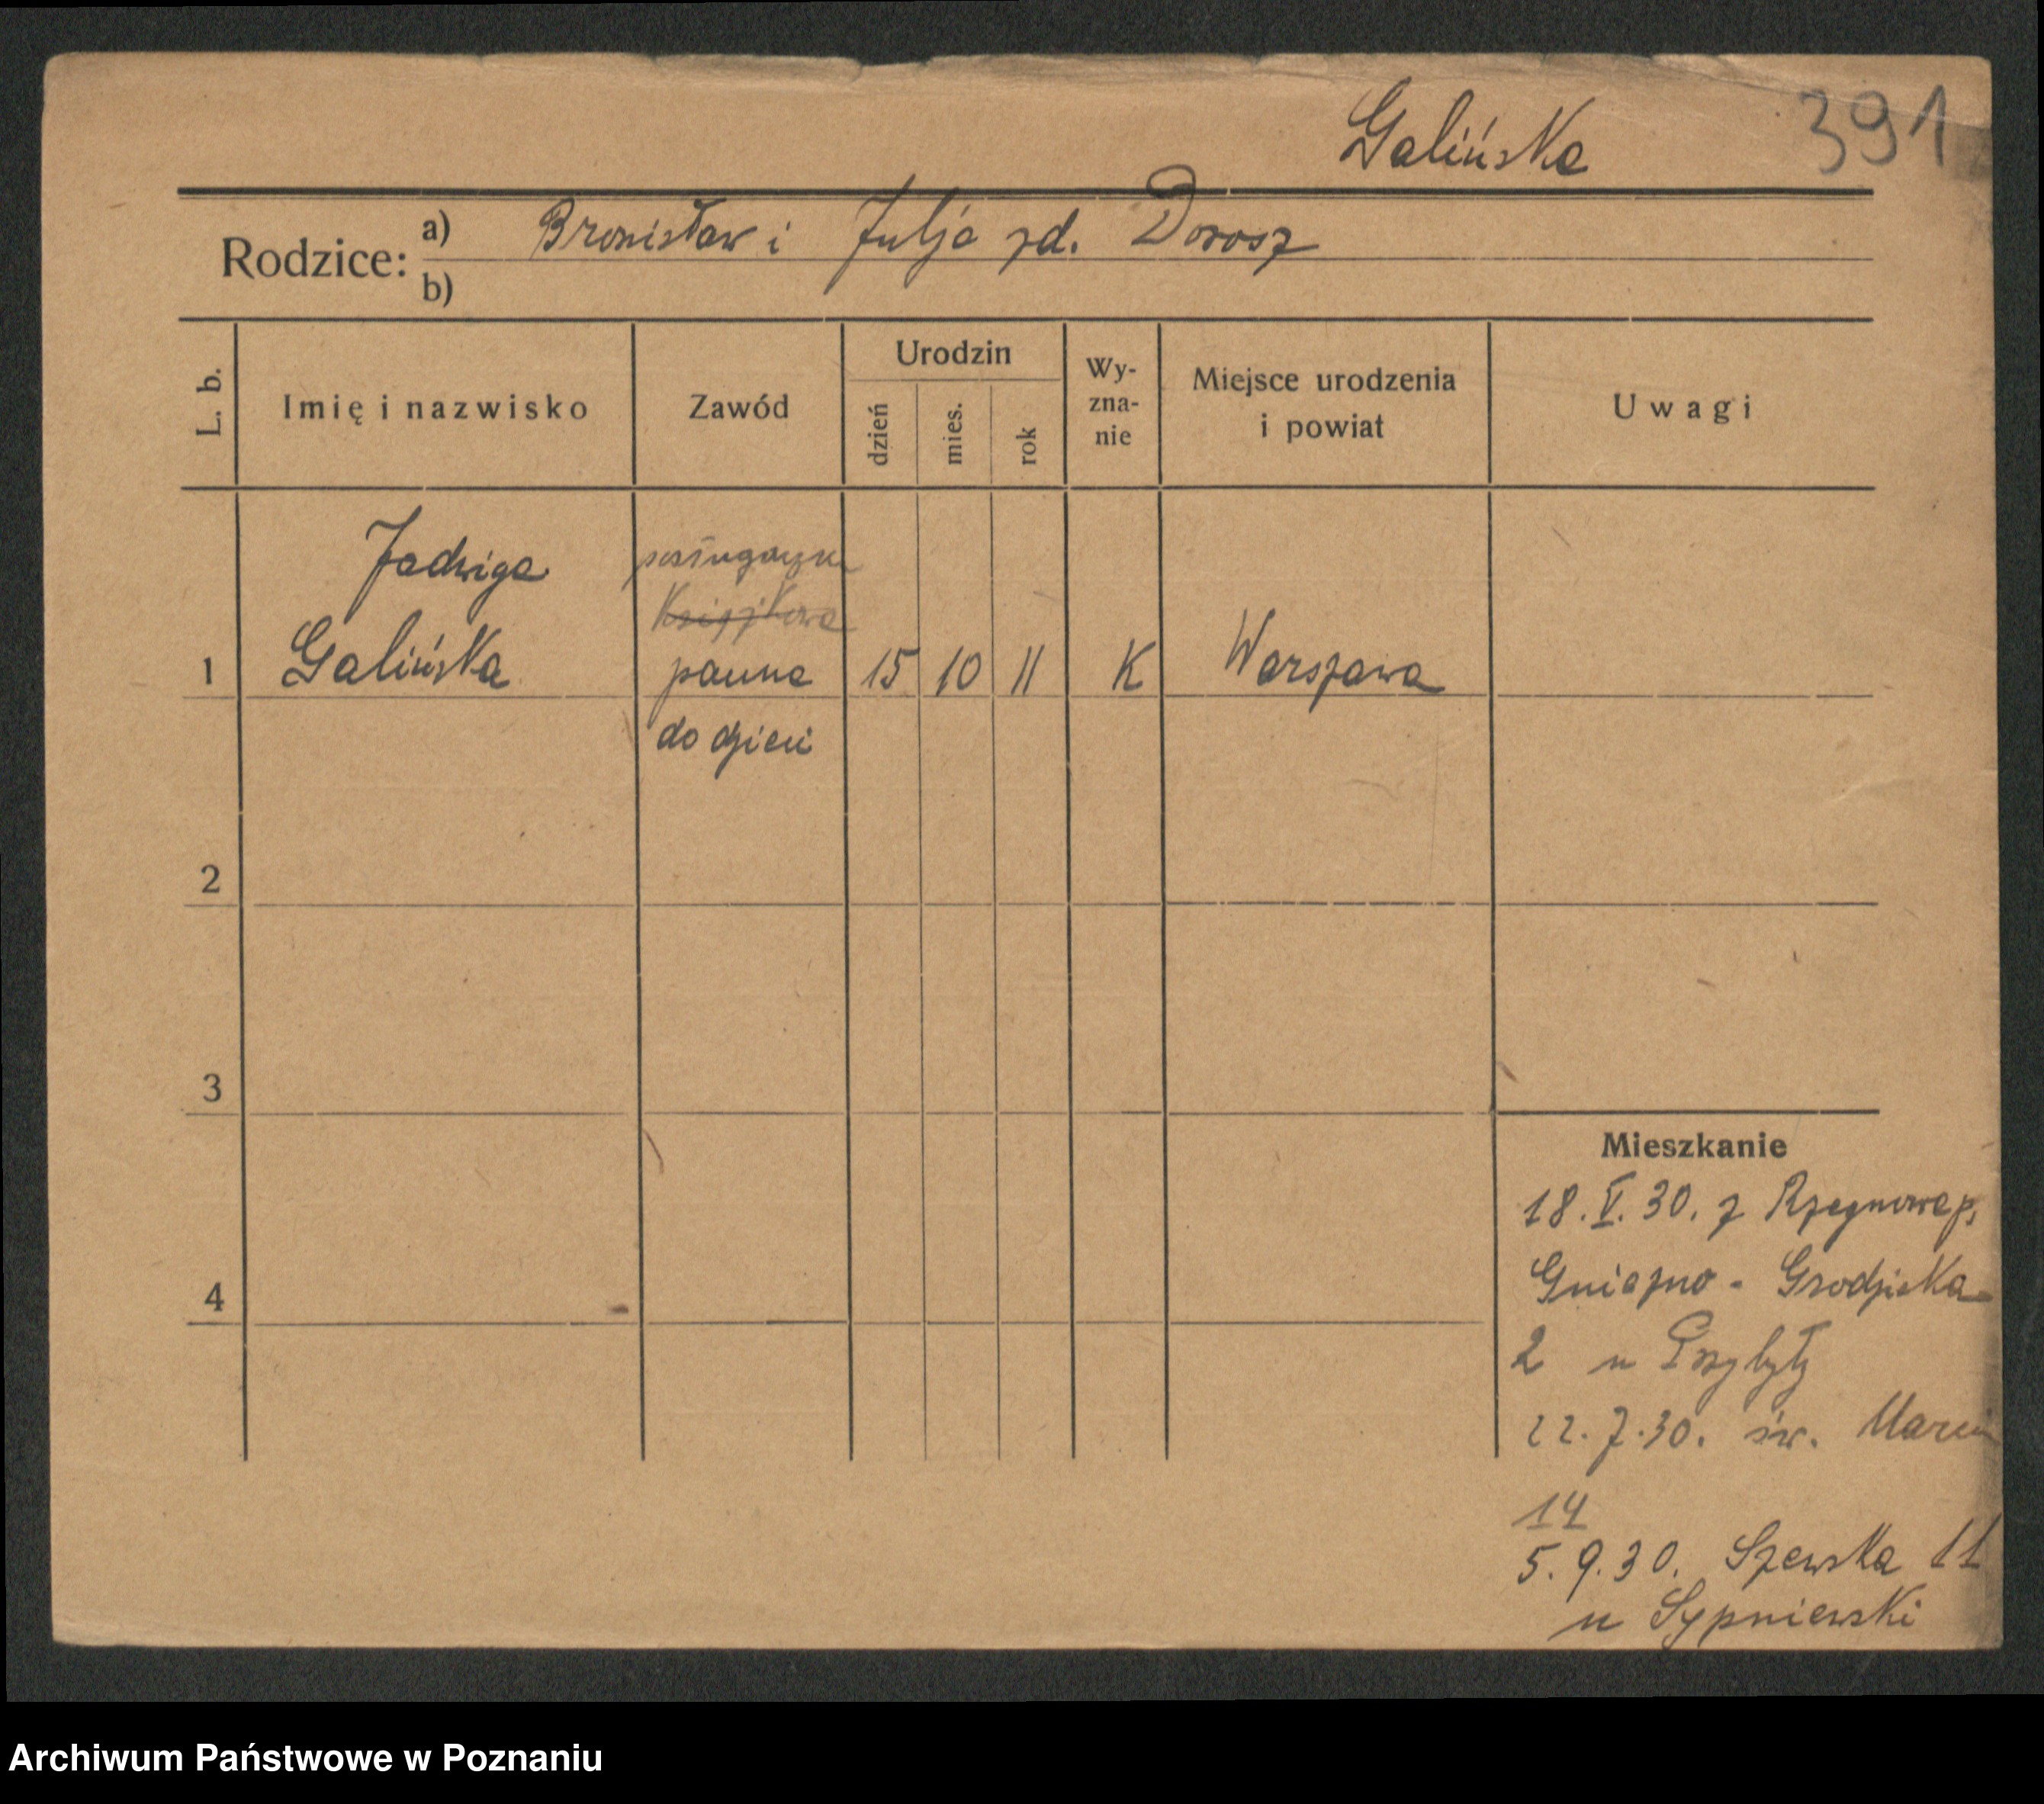 Galińska 391
Rodzice: a) Bronisław i Julja zd. Dorosz
b)
L. b. Imię i nazwisko Zawód Urodzin dzień mies. rok Wy-zna-nie Miejsce urodzenia i powiat Uwagi
Jadwiga posługaczka
1 Galińska panna 15 10 11 K Warszawa
do dzieci
2
3
Mieszkanie
18. V. 30. z Rzegnowa p.
4
Gniezno - Grodziska
2 u Przybyły
22.7.30. św. Marcin
14
5.9.30. Szewska 11
u Sypniewski
Archiwum Państwowe w Poznaniu